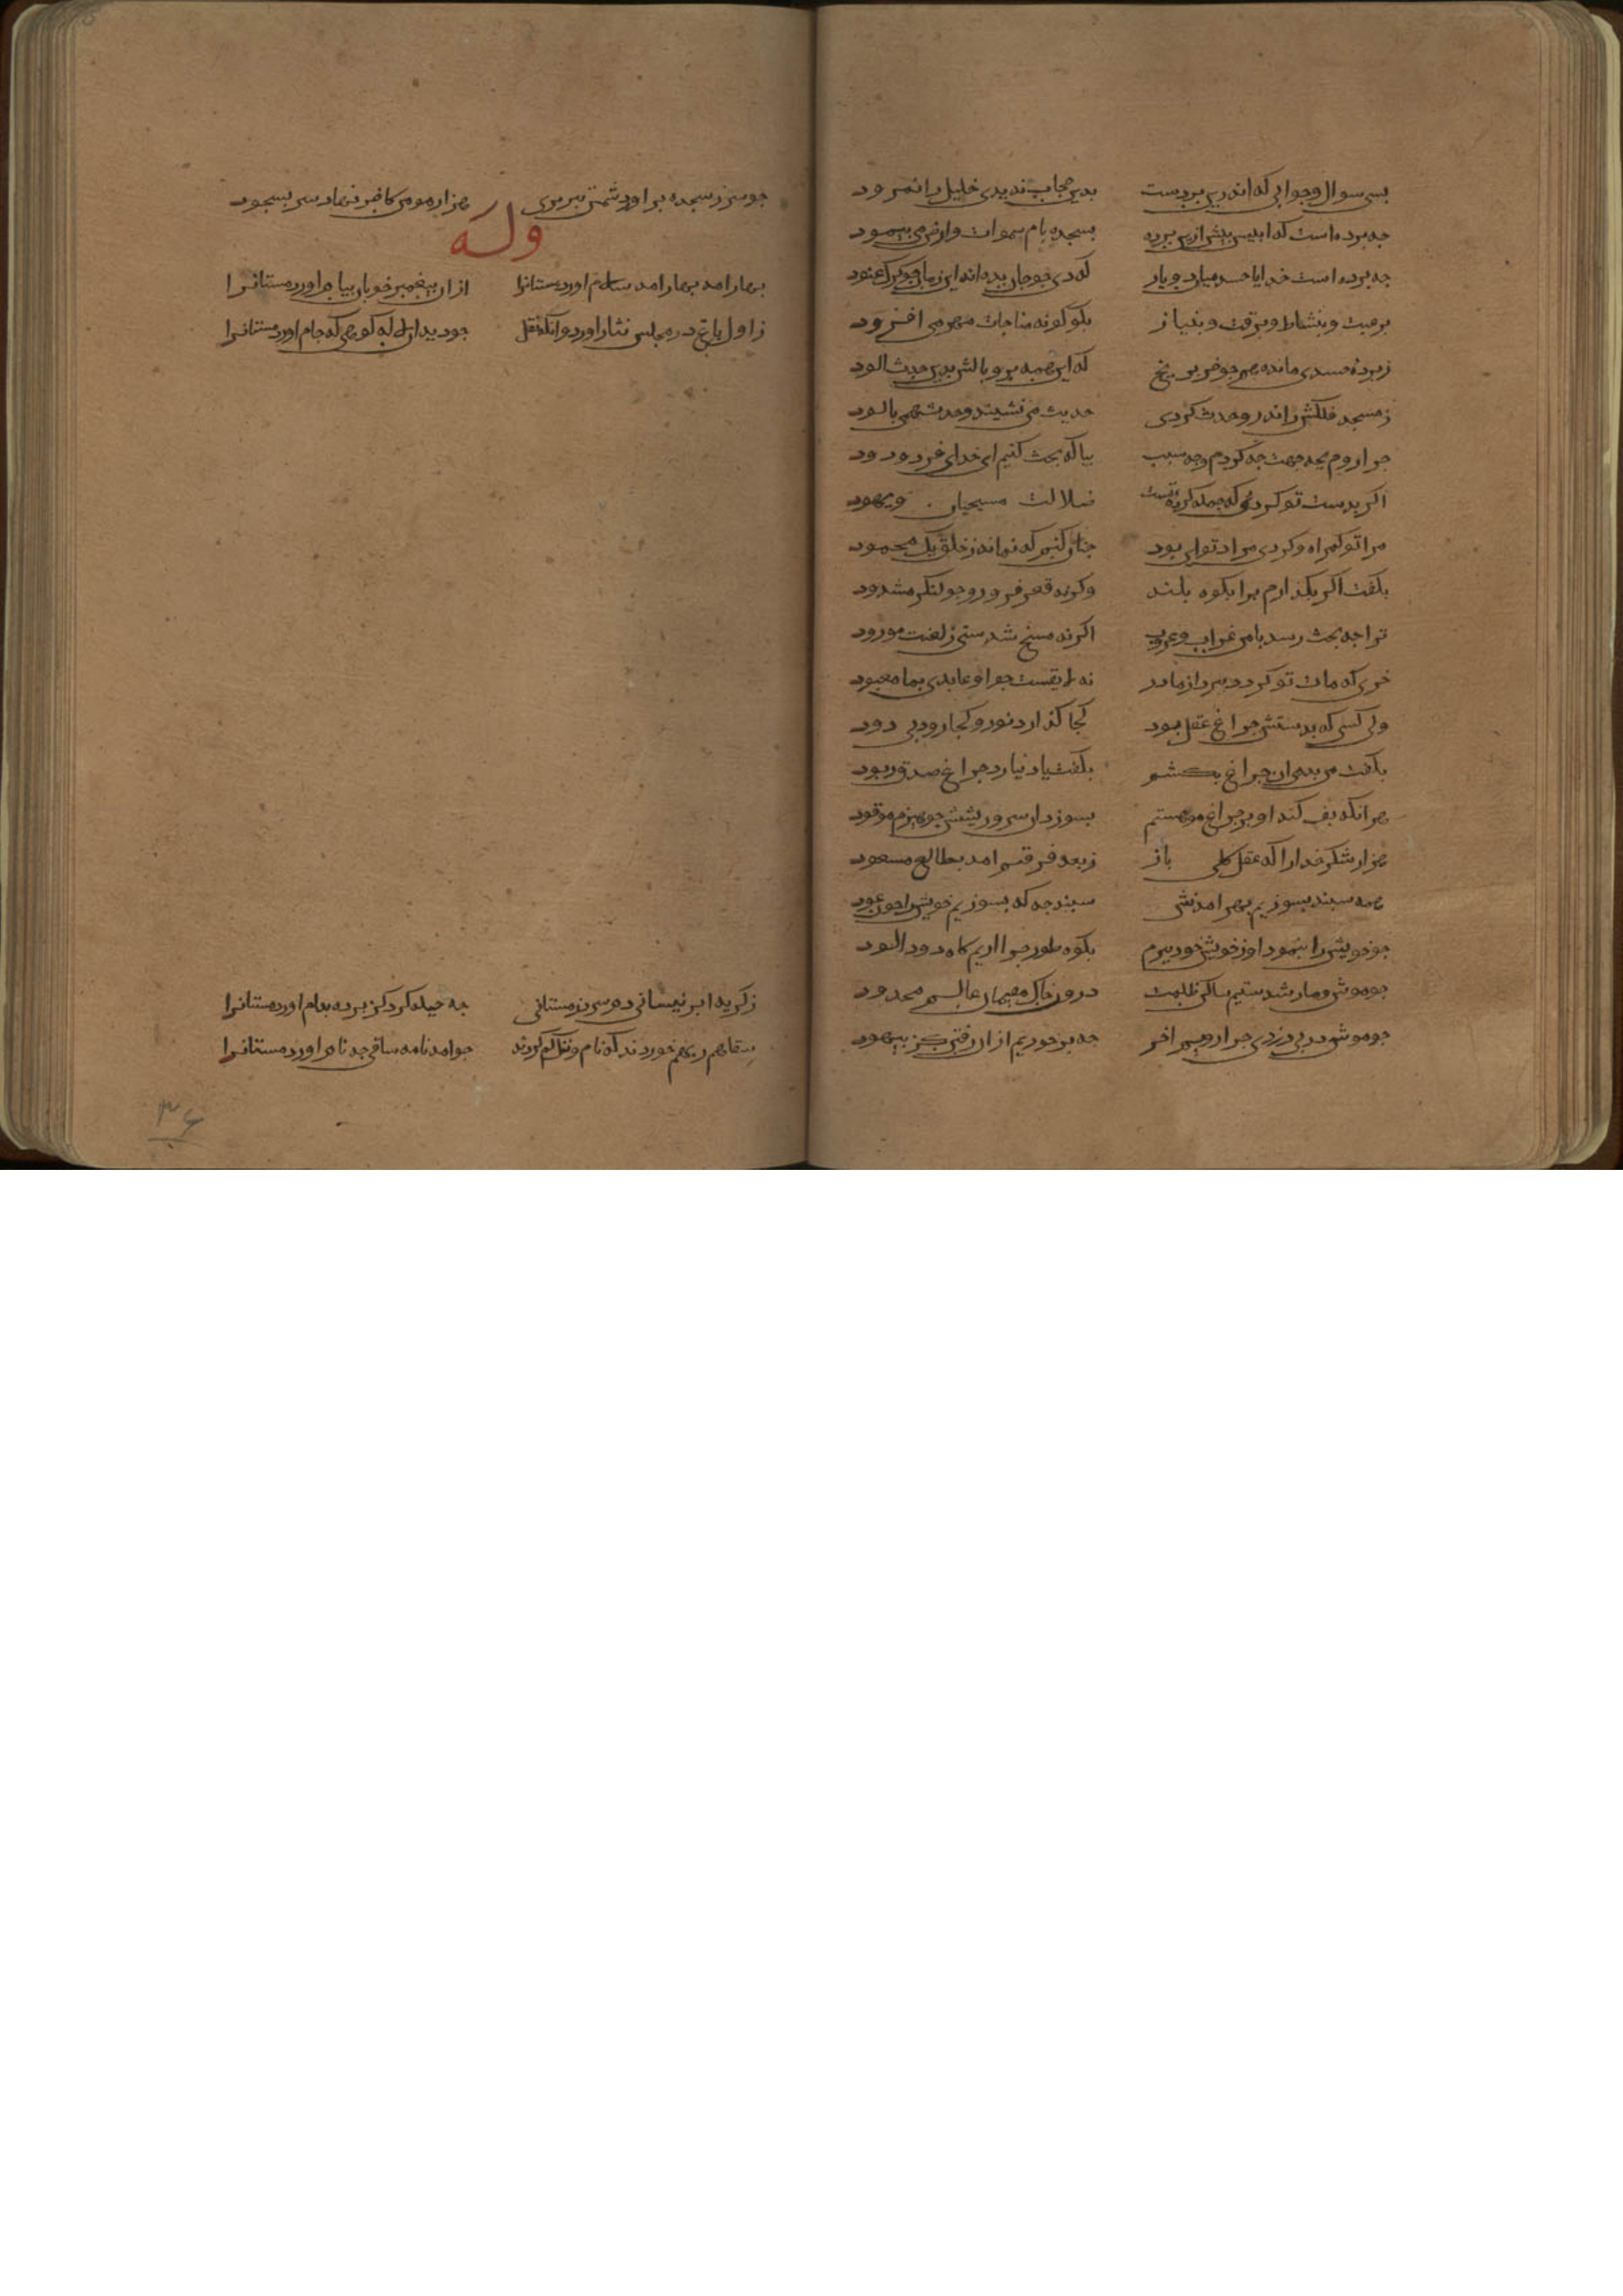 بسی سوال و جوابی که اندرین بردست بدین حجاب ندیدی خلیل را نمرود
چه پرده است که ابلیس پیش ازین پرده بسجده بام سموات وارض می پیمود
چه پرده است خدایا حسد میان دو یار که دی چو جان بده اند این زمان چو کرک عنود
برغبت و بنشاط و برقت و بنیاز بکو کونه مناجات مهرمی افزود
ز پرده حسدی مانده همچو خر بر یخ که این همه پر و بالش بدین حدث الود
ز مسجد فلکش راند رو حدث کردی حدیث می نشیند و حدث همی پالود
چرا روم بچه جهت چه کردم و چه سبب بیا که بحث کنیم ای خدای فرد ودود
اکر بدست تو کردی که جمله کرده تست ضلالت مسیحیان و یهود
مرا تو کمراه و کردی مراد تو این بود چنان کنم که نماند ز خلق یک محمود
بکفت اکر بکذارم برا بکوه بلند وکرنه قعر فرو رو چو لنکر مشدود
ترا چه بحث رسد با من غراب و غروب اکر نه مسخ شدستی ز لعنت مورود
خری که مات تو کردد ببرد از ما در نه لایقست چو او عابدی بما معبود
ولی کسی که بدستش چراغ عقل بود کجا کذارد نور و کجا رود بی دود
بکفت من بدمی ان چراغ بکشم بکفت باد نیارد چراغ صدق ربود
هر انکه پف کند او بر چراغ موهبتم بسوزد ان سر و ریشش چو هیزم موقود
هزار شکر خدا را که عقل کلی باز ز بعد فرقتم امد بطالع مسعود
همه سپند بسوزیم بهر امدنش سپند چه که بسوزیم خویش را چون عود
چو خویش را بنمود او ز خویش خود ببرم بکوه طور چرا اریم کاه دود الود
چو موش و مار شدستیم ساکن ظلمت درون خاک مقیمان عالم محدود
چو موش در پی دزدی چرا رویم اخر چه برخوریم از ان رفتن کژ بیهود
چو سر ز سجده براورد شمس تبریزی هزار مومن کافر نهاد سر بسجود
وله
بهار امد بهار امد سلام اورد مستانرا از ان پیغمبر خوبان پیام اورد مستانرا
ز اول باغ در مجلس نثار اورد و انکه نقل چو دید ان لاله کوهی که جام اورد مستانرا
ز کریه ابر نیسانی دم سرد زمستانی چه حیله کرد کز پرده بدام اورد مستانرا
سقاهم ربهم خوردند که نام و ننک کم کردند چو امد نامه ساقی چه نام اورد مستانرا
۳۶